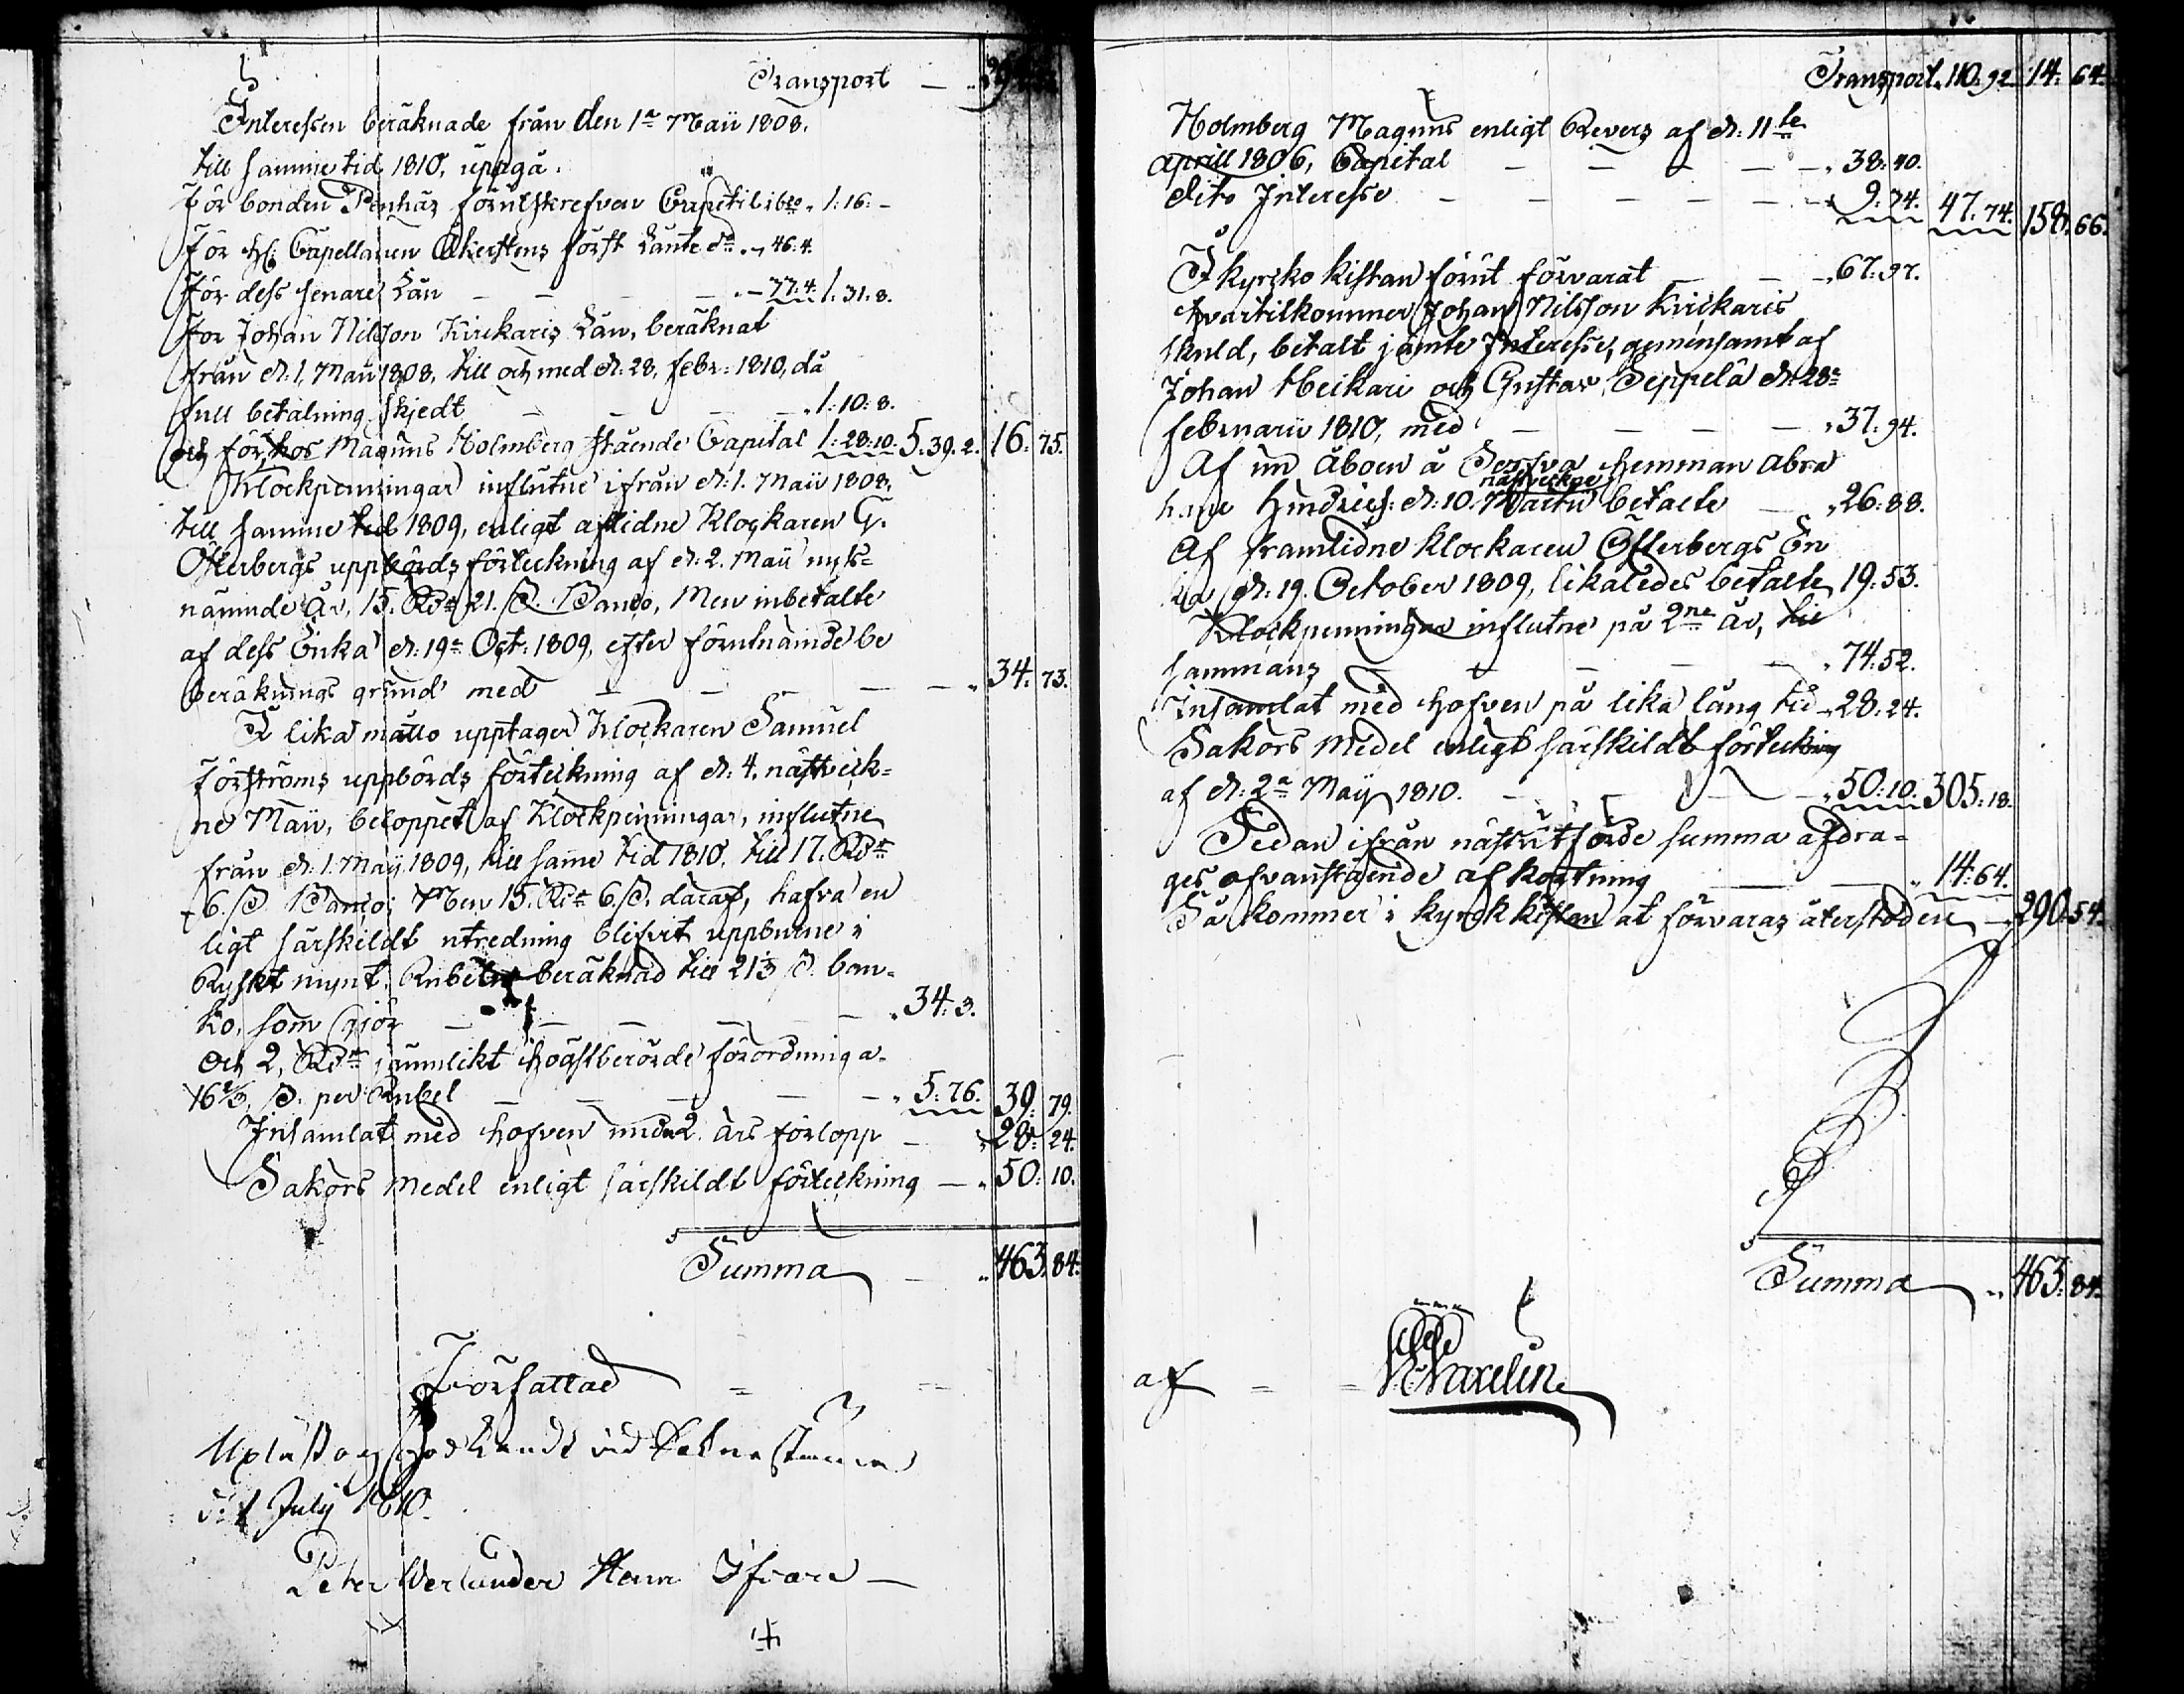 Transport — „ 29
Interessen beräknade från den 1a Maii 1808.
till samme tid 1810, uppgå.
För bonden Penhäz förutskrefven Capital „ 1:16.–
För H: Capellanen Akerstens först Länte do „ 46:4.
För dess senare Lån — — — „ 77:4. 1:31:8.
For Johan Nilsson Kirckaris Lån, beräknat
från d: 1, Maii 1808, till och med d: 28, febr: 1810, då
full betalning skjedt — — — „ 1:10:8.
och för, hos Magnus Holmberg stående Capital 1:28:10. 5:39:2. 16:75.
Klockpenningar influtne ifrån d: 1. Maii 1808,
till samme tid 1809, enligt aflidne Klockaren G.
Österbergs uppbörds förteckning af d: 2. Maii nyss=
nämnde år, 15. Rdr 21. s. Banco, Men inbetalte
af dess Enka d: 19de Oct: 1809, efter förutnämde be
beräknings grund med — — — — „ 34:73.
I lika motto upptager Klockaren Samuel
Förströms uppbörds förteckning af d: 4. nästvick=
ne Maii, beloppet af Klockpenningar, influtne
från d: 1. Maij 1809, till same tid 1810. till 17. Rdr
6. s. Banco; Men 15. Rdr 6. s. däraf, hafva en
ligt särskildt utredning blifvit uppburne i
Ryskt mynt, Rubeln beräknad till 21⅓ s. ban-
ko, som gjör — — — — „ 34:3.
Och 2, Rdr jämnlikt högstberörde förordning a.
16⅔, s. per Rubel — — — „ 5:76. 39:79.
Insamlat med Hofven under 2. års förlopp — „ 28:24.
Sakörs medel enligt särskildt förteckning — „ 50:10.
Summa — „ 463:84.
Författad = =
Upläst och godkändt vid Sokne stämma
d: 1 July 1810.
Peter Verlander Henr
Transport „ 110:92. 14:64.
Holmberg Magnus enligt Revers af d: 11te
aprill 1806, Capital — — — — „ 38:40.
dito Interesse — — — — „ 9:34. 47:74. 158:66.
I kyrcko kistan förut förvarat — — „ 67:97.
Hvartilkommer Johan Nilsson Kirckaris
skuld, betalt jämte Interesse, gemensamt af
Johan Heikari och Gustav Seppelä d: 28de
februarii 1810, med — — — — „ 37:94.
Af un åboen å hemman Abra
ham Hindrich: d: 10. nästvickne Martii betalte — „ 26:88.
Af framlidne Klockaren Österbergs En
ka d: 19. October 1809, likaledes betalte 19:53.
Klockpenningar influtne på 2ne år, till
sammans — — — — „ 74:52.
Insamlat med Hofven på lika lång tid „ 28:24.
Sakörs Medel enligt särskildt förteckning
af d: 2a Maij 1810. — — — „ 50:10. 305:18.
Sedan ifrån nästutförde summa afdra=
ges ofvanstående afkortning — — „ 14:64.
Så kommer i kyrck kistan at förvaras återstoden — 290:54.
Summa „ 463:84.
af = =